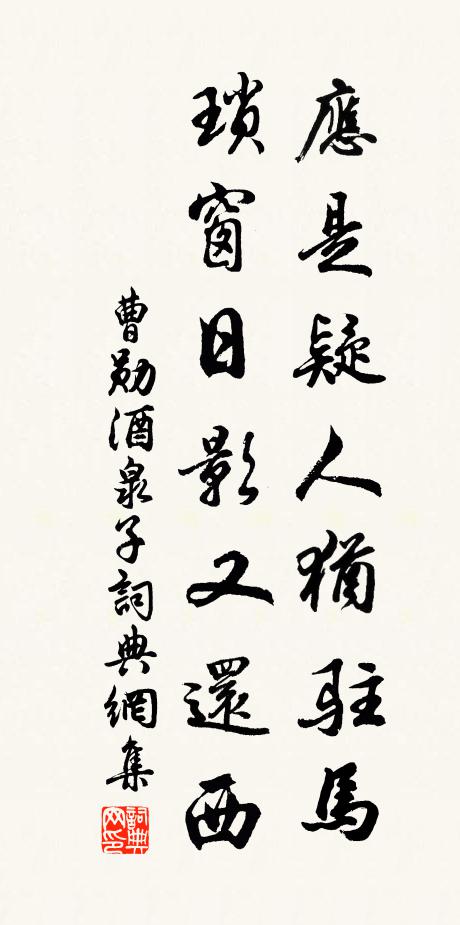 應是疑人猶駐馬
瑣窗日影又還西
曹勛酒泉子詞典網集
詞典网印